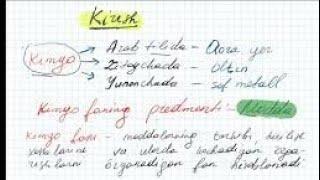 Kirish
Arab tilida - Qora yer
Kimyo Xitoychada - Oltin
Yunonchada - sof metall
Kimyo faning predmeti - Modda
Kimyo fani - moddalarning tarkibi, tuzilishi
xossalarini va ularda uchadigan o'zga-
rishlarni o'rganadigan fan hisoblanadi